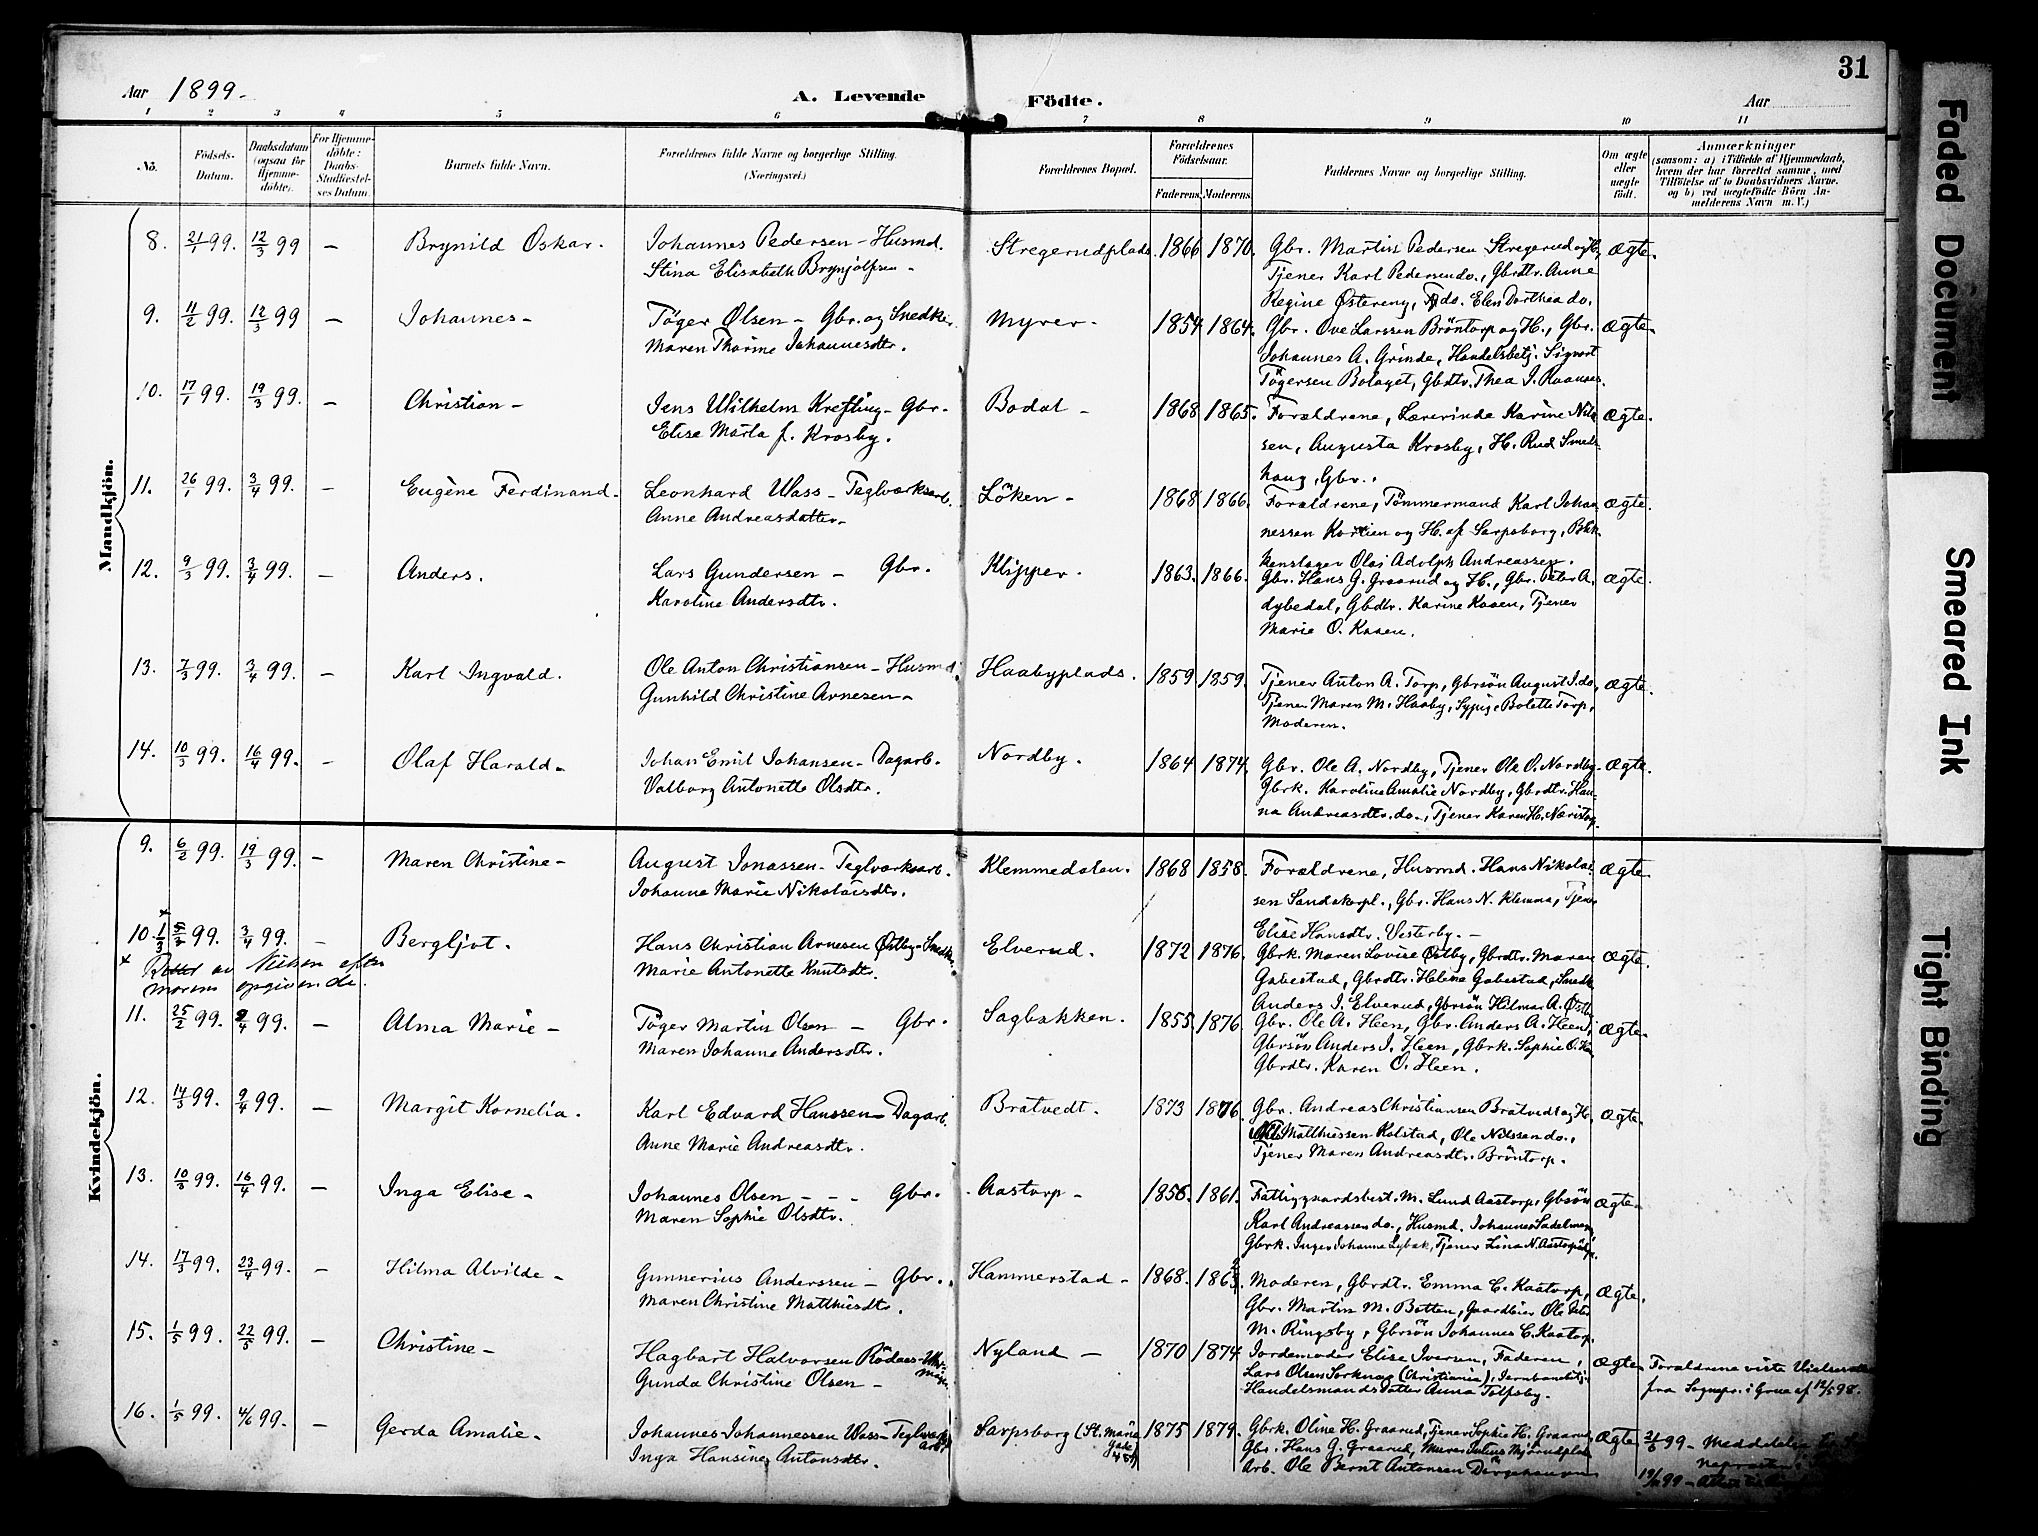 31
Aar 1899.
A. Levende Födte.
Aar
1 2 3 4 5 6 7 8 9 10 11
No.
Födsels-Datum.
Daabsdatum (ogsaa for Hjemmedöbte).
For Hjemmedöbte: Daabs-Stadfæstelses Datum.
Barnets fulde Navn.
Forældrenes fulde Navne og borgerlige Stilling. (Næringsvei.)
Forældrenes Bopæl.
Forældrenes Födselsaar.
Faderens. Moderens.
Faddernes Navne og borgerlige Stilling.
Om ægte eller uægte födt.
Anmærkninger
(saasom: a) i Tilfælde af Hjemmedaab, hvem der har forrettet samme, med Tilföielse af to Daabsvidners Navne, og b) ved uægtefödte Börn Anmelderens Navn m. V.)
Mandkjön.
8. 21/1 99. 12/3 99 – Brynild Oskar. Johannes Pedersen – Husmd. Stregerudplads 1866 1870. Gbr. Martin Pedersen Stregerud og H., ægte.
Stina Elisabeth Brynjolfsen – Tjener Karl Pedersen do., Gbrdtr. Anne
Regine Östereng, do. Elen Dorthea do.
9. 11/2 99. 12/3 99 – Johannes – Töger Olsen – Gbr. og Snedker Myrer. 1854 1864. Gbr. Ove Larssen Bröntorp og H., Gbr. ægte.
Maren Thorine Johannesdtr. Johannes A. Grinde, Handelsbetj. Sigvart
Tögersen Bolaget, Gbdtr. Thea J. Raanaes.
10. 17/1 99. 19/3 99. – Christian – Jens Wilhelm Krefting – Gbr. Bodal – 1868 1865. Forældrene, Lærerinde Karine Nilssen, ægte.
Elise Marta f. Krosby. Augusta Krosby, H. Rud Smedhaug, Gbr.
11. 26/1 99. 3/4 99. – Eugène Ferdinand. Leonhard Wass – Teglværksarb. Löken – 1868 1866. Forældrene, Tömmermand Karl Johan- ægte.
Anne Andreasdatter – nessen og H. af Sarpsborg,
Olaf Adolph Andreassen.
12. 9/3 99. 3/4 99. – Anders. Lars Gundersen – Gbr. Klipper. 1863. 1866. Gbr. Hans G. Graarud og H., Gbr. Peter A. ægte.
Karoline Andersdtr. dybedal, Gbdtr. Karine Kaasen, Tjener
Marie O. Kaasen.
13. 7/3 99. 3/4 99. – Karl Ingvald. Ole Anton Christiansen – Husmd. Haabyplads. 1859 1859. Tjener Anton A. Torp, Gbrsön August J. do, ægte.
Gunhild Christine Arnesen – Tjener Maren M. Haaby, Sypig. Bolette Torp,
Moderen.
14. 10/3 99. 16/4 99. – Olaf Harald – Johan Emil Johansen – Dagarb. Nordby. 1864 1874. Gbr. Ole A. Nordby, Tjener Ole O. Nordby ægte.
Valborg Antonette Olsdtr. Gbrk. Karoline Amalie Nordby, Gbrdtr. Han-
na Andreasdtr. do., Tjener Karen H. Narstorp.
Kvindekjön.
9. 6/2 99. 19/3 99. – Maren Christine – August Jonassen – Teglværksarb. Klemmedalen. 1868 1858. Forældrene, Husmd. Hans Nikolai- ægte
Johanne Marie Nikolaisdtr. sen Sandakerpl., Gbr. Hans N. Klemma, Tjener
Elise Hansdtr. Vesterby. –
10. x 1/3 5/3 99. 3/4 99. – Bergljot. Hans Christian Arnesen Östby – Snedker. Elverud. 1872 1876. Gbrk. Maren Lovise Östby, Gbrdtr. Maren ægte.
x Rettet av Nielsen efter morens opgivende.
Marie Antonette Knutsdtr. Gabestad, Gbrdtr. Helene Gabestad, Snedk.
Anders J. Elverud, Gbrsön Hilmar A. Östby
11. 25/2 99. 9/4 99. – Alma Marie – Töger Martin Olsen – Gbr. Sagbakken. 1855 1876. Gbr. Ole A. Heen, Gbr. Anders A. Heen, ægte.
Maren Johanne Andersdtr. Gbrsön Anders J. Heen, Gbrk. Sophie O. Heen
Gbrdtr. Karen O. Heen.
12. 14/3 99. 9/4 99. – Margit Kornelia. Karl Edvard Hanssen – Dagarb. Bratvedt. 1873 1876. Gbr. Andreas Christiansen Bratvedt og H., ægte.
Anne Marie Andreasdtr. Matthiessen Kolstad, Ole Nilssen do.,
Tjener Maren Andreasdtr. Bröntorp.
13. 10/3 99. 16/4 99. – Inga Elise – Johannes Olsen – – – Gbr. Aastorp – 1856. 1861. Fattiggaardsbest. M. Lund Aastorp, Gbrsön ægte.
Maren Sophie Olsdtr. Karl Andreassen do., Husmd. Johannes Sadelmager
Gbrk. Inger Johanne Lybæk, Tjener Lina N. Aastorp
14. 17/3 99. 23/4 99. – Hilma Alvilde – Gunnerius Anderssen – Gbr. Hammerstad – 1868. 1863. Moderen, Gbrdtr. Emma C. Kaatorp, ægte.
Maren Christine Matthiesdtr. Gbr. Martin M. Botten, Ole
M. Ringsby, Gbrsön Johannes C. Kaatorp.
15. 1/5 99. 22/5 99. – Christine – Hagbart Halvorsen Rödaas – Nyland – 1870 1874 Jordemoder Elise Iversen, Faderen, ægte. Forældrene viste Vielsesattest
Gunda Christine Olsen – Lars Olsen Sorknes (Christiania), Jernbanebetj. fra Sognepr. i Grue af 12/5 98.
Handelsmands Datter Anna Tolfsby.
16. 1/5 99. 4/6 99. – Gerda Amalie – Johannes Johannessen Wass – Teglværksarb. Sarpsborg (St. Marie Gade 451) 1875 1879. Gbrk. Oline H. Graarud, Tjener Sophie H. Graarud, ægte 21/6 99 – Meddelelse
Inga Hansine Antonsdtr. Gbr. Hans G. Graarud, Murer Julius Mjörudplads
Arb. Ole Bernt Antonsen 99 –
Faded Document
Smeared Ink
Tight Binding